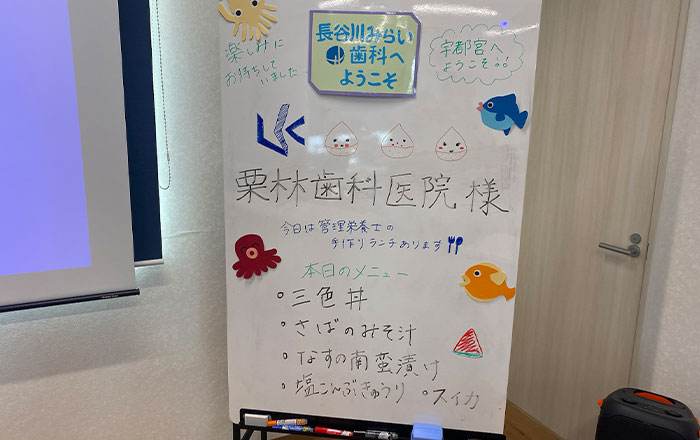 長谷川みらい
歯科へ
ようこそ
楽しみに
お待ちして
いました
宇都宮へ
ようこそ!!
栗林歯科医院 様
今日は管理栄養士の
手作りランチあります
本日のメニュー
・三色丼
・さばのみそ汁
・なすの南蛮漬け
・塩こんぶきゅうり ・スイカ